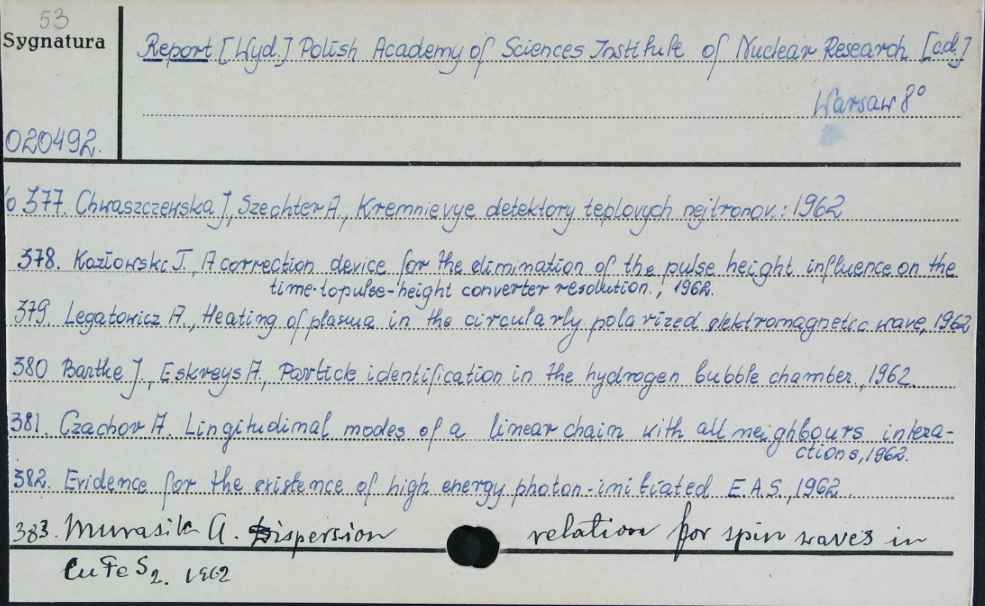 53
Sygnatura
Report [Wyd.] Polish Academy of Sciences Institute of Nuclear Research [cd.]
Warsaw 8°
020492.
377. Chwaszczewska J., Szechter A., Kremnievye detektory teplovych nejtronov.: 1962
378. Kozłowski T., A correction device for the elimination of the pulse height influence on the
time-to pulse-height converter resolution., 1962.
379. Legatowicz A., Heating of plasma in the circularly polarized elektromagnetic wave, 1962
380 Bartke J., Eskreys A., Particle identification in the hydrogen bubble chamber, 1962.
381. Czachor A. Lingitudimal modes of a linear chain with all neighbours intera-
ctions, 1962.
382. Evidence for the existence of high energy photon-imitiated E.A.S., 1962.
383. Murasik A. Dispersion relation for spin waves in
CuFeS2. 1962